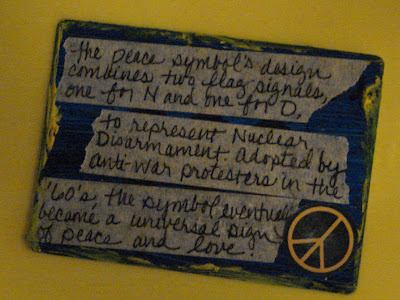 the peace symbol's design
combines two flag signals,
one for N and one for D,
to represent Nuclear
Disarmament adopted by
anti-war protesters in the
'60's, the symbol eventually
became a universal sign
of peace and love.